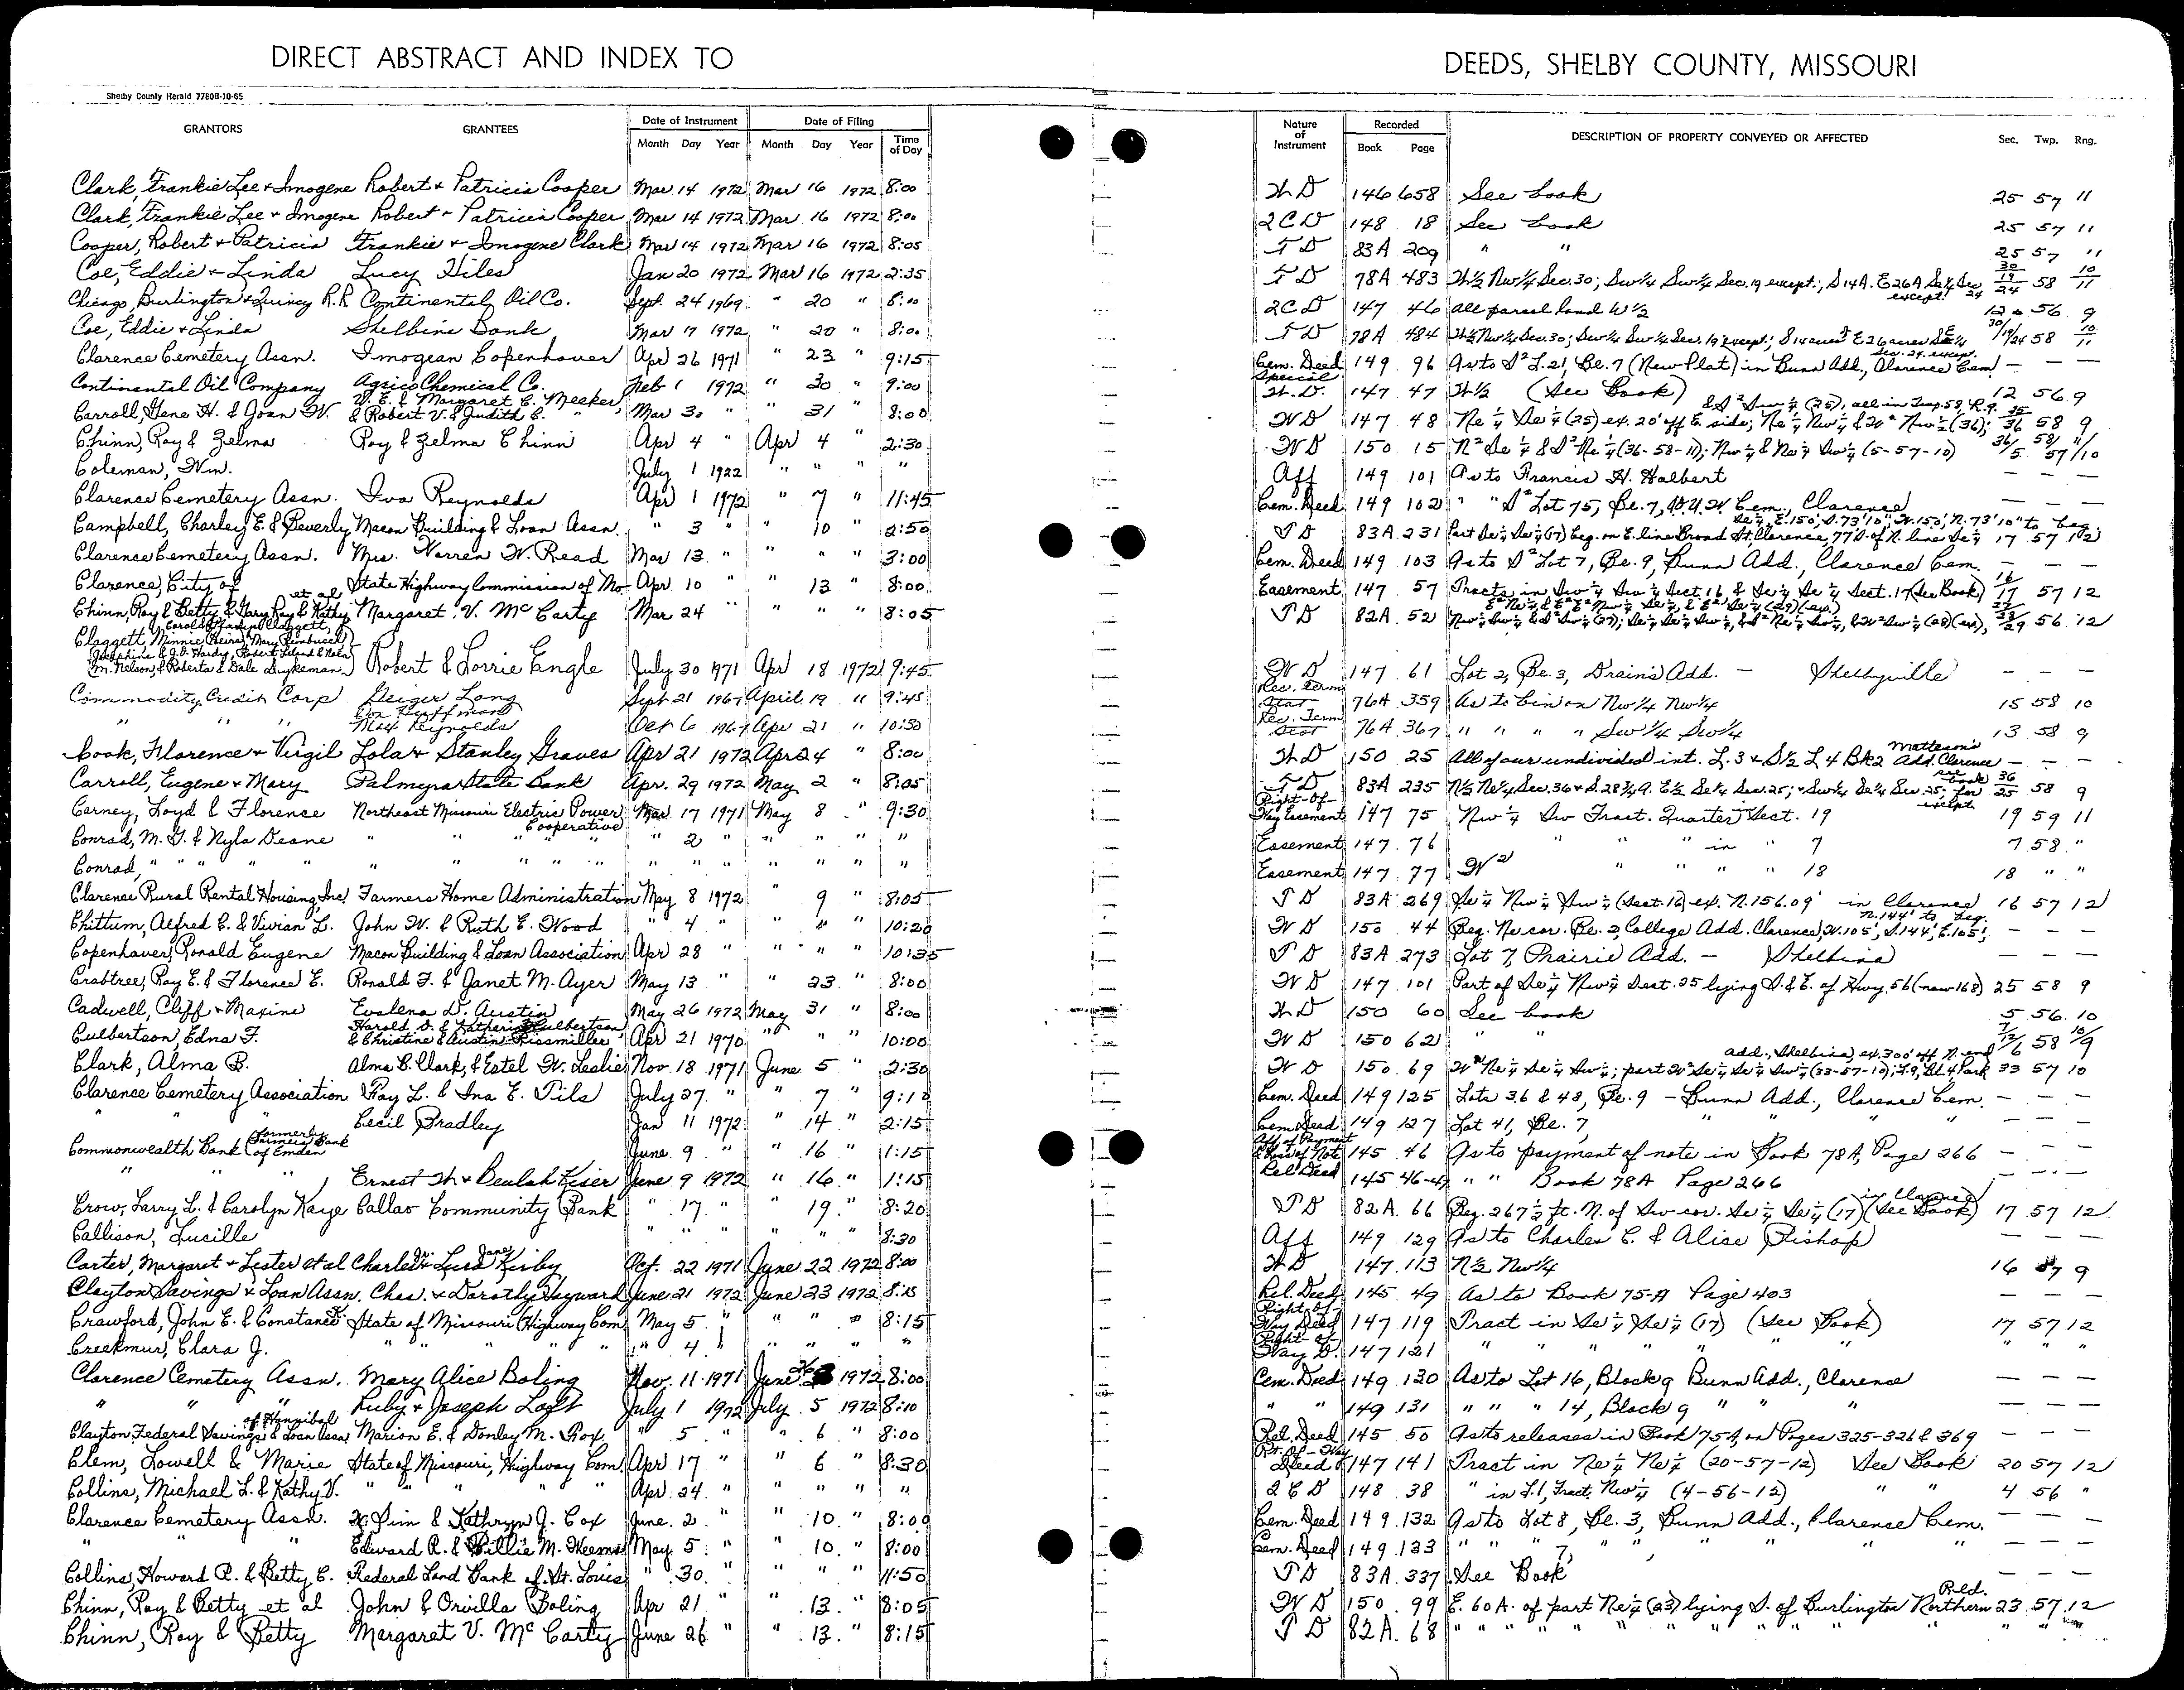 DIRECT ABSTRACT AND INDEX TO
DEEDS, SHELBY COUNTY, MISSOURI
Shelby County Herald 7780B-10-65
GRANTORS GRANTEES Date of Instrument Month Day Year Date of Filing Month Day Year Time of Day Nature of Instrument Recorded Book Page DESCRIPTION OF PROPERTY CONVEYED OR AFFECTED Sec. Twp. Rng.
Clark, Frankie Lee + Imogene Robert + Patricia Cooper Mar 14 1972 Mar 16 1972 8:00 W D 146 658 See book 25 57 11
Clark, Frankie Lee + Imogene Robert + Patricia Cooper Mar 14 1972 Mar 16 1972 8:00 2 C D 148 18 See book 25 57 11
Cooper, Robert + Patricia Frankie + Imogene Clark Mar 14 1972 Mar 16 1972 8:05 T D 83A 209 " " 25 57 11
Coe, Eddie + Linda Lucy Hiles Jan 20 1972 Mar 16 1972 2:35 T D 78A 483 W½ Nw¼ Sec. 30; Sw¼ Sw¼ Sec. 19 except; S 14A. E 26A Se¼ Sec 24 except 30/19/24 58 10/11
Chicago, Burlington & Quincy R.R Continental Oil Co. Sept. 24 1969 " 20 " 8:00 2 C D 147 46 all parcel land W½ 12 56 9
Coe, Eddie + Linda Shelbina Bank Mar 17 1972 " 20 " 8:00 T D 78A 484 W½ Nw¼ Sec. 30; Sw¼ Sw¼ Sec. 19 except; S 14 acres E 26 acres Se¼ Sec. 24 except 30/19/24 58 10/11
Clarence Cemetery Assn. Imogean Copenhaver Apr 26 1971 " 23 " 9:15 Cem. Deed 149 96 As to S² L.21, Bl. 7 (New Plat) in Bunn Add., Clarence Cem — — —
Continental Oil Company Agrico Chemical Co. Feb 1 1972 " 30 " 9:00 Special W. D. 147 47 W½ (See Book) 12 56 9
Carroll, Gene H. & Joan W. V. E. & Margaret C. Meeker, & Robert V. & Judith C. " Mar 30 " " 31 " 8:00 W D 147 48 Ne¼ Se¼ (25) ex. 20' off E. side; Ne¼ Nw¼ & 20ᴬ Nw½ (36); & S² Sw¼ (25), all in Twp. 58, R. 9. 25/36 58 9
Chinn, Roy & Zelma Roy & Zelma Chinn Apr 4 " Apr 4 " 2:30 W D 150 15 N² Se¼ & S² Ne¼ (36-58-11); Nw¼ & Ne¼ Sw¼ (5-57-10) 36/5 58/57 11/10
Coleman, Wm. July 1 1922 " " " " Aff 149 101 As to Francis H. Halbert — —
Clarence Cemetery Assn. Iva Reynolds Apr 1 1972 " 7 " 11:45 Cem. Deed 149 102 " " S² Lot 75, Bl. 7, W.U.W. Cem., Clarence — — —
Campbell, Charley E. & Beverly Macon Building & Loan Assn. " 3 " " 10 " 2:50 T D 83A 231 Part Se¼ Se¼ (17) beg. on E. line Broad St, Clarence, 77' S. of N. line Se¼ Se¼, E. 150', S. 73'10", W. 150', N. 73'10" to beg. 17 57 12
Clarence Cemetery Assn. Mrs. Warren W. Read Mar 13 " " " " 3:00 Cem. Deed 149 103 As to S² Lot 7, Bl. 9, Bunn Add., Clarence Cem. — — —
Clarence, City of State Highway Commission of Mo. Apr 10 " " 13 " 8:00 Easement 147 57 Tracts in Sw¼ Sw¼ Sect. 16 & Se¼ Se¼ Sect. 17 (See Book) 16/17 57 12
Chinn, Roy & Betty & Gary Ray & Kathy et al Margaret V. McCarty Mar 24 " " " " 8:05 T D 82A 52 Nw¼ Sw¼ & S² Sw¼ (27); Se¼ Se¼ Sw¼, & S² Ne¼ Sw¼, & W² Sw¼ (28) (ex), E² Ne¼ & E² E² Nw¼ Se¼, & E² Se¼ (29) (ex.) 27/28/29 56 12
Claggett, Minnie, Heirs, Robert & Lorrie Engle July 30 1971 Apr 18 1972 9:45 W D 147 61 Lot 2, Bl. 3, Drains Add. — Shelbyville — — —
Commodity Credit Corp Geiger Long Sept 21 1967 April 19 " 9:45 Rec. Term Stat 76A 359 As to bin on Nw¼ Nw¼ 15 58 10
" " " Max Reynolds Oct 6 1967 Apr 21 " 10:30 Rec. Term Stat 76A 367 " " " " Sw¼ Sw¼ 13 58 9
Cook, Florence + Virgil Lola + Stanley Graves Apr 21 1972 Apr 24 " 8:00 W D 150 25 All of our undivided int. L. 3 + S½ L 4 Bk 2 Matteson's Add. Clarence — — —
Carroll, Eugene + Mary Palmyra State Bank Apr. 29 1972 May 2 " 8:05 T D 83A 235 N½ Ne¼ Sec. 36 + S. 28¾ A. E½ Se¼ Sec. 25; + Sw¼ Se¼ Sec. 25; see book for except 36/25 58 9
Carney, Loyd & Florence Northeast Missouri Electric Power Cooperative Mar. 17 1971 May 8 " 9:30 Right-of-Way Easement 147 75 Nw¼ Sw Fract. Quarter Sect. 19 19 59 11
Conrad, M. G. & Nyla Deane " " " " " 2 " " " " " Easement 147 76 " " in " 7 7 58 "
Conrad, " " " " " " " " " " " " " " " " Easement 147 77 W² " " " " 18 18 " "
Clarence Rural Rental Housing, Inc. Farmers Home Administration May 8 1972 " 9 " 8:05 T D 83A 269 Se¼ Nw¼ Sw¼ (Sect. 16) ex. N. 156.09' in Clarence 16 57 12
Chittum, Alfred C. & Vivian L. John W. & Ruth E. Wood " 4 " " " " 10:20 W D 150 44 Beg. Ne cor. Bl. 2, College Add. Clarence, W. 105', S. 144', E. 105', N. 144' to beg. — — —
Copenhaver, Ronald Eugene Macon Building & Loan Association Apr 28 " " " " 10:35 T D 83A 273 Lot 7, Prairie Add. — Shelbina — — —
Crabtree, Roy E. & Florence E. Ronald F. & Janet M. Ayer May 13 " " 23 " 8:00 W D 147 101 Part of Se¼ Nw¼ Sect. 25 lying S. & E. of Hwy. 56 (now 168) 25 58 9
Cadwell, Cliff + Maxine Evalena D. Austin May 26 1972 May 31 " 8:00 W D 150 60 See book 5 56 10
Culbertson, Edna F. Harold D. & Katherine Culbertson & Christine & Austin Rissmiller Apr 21 1970 " " " 10:00 W D 150 62 " " 58
Clark, Alma B. Alma B. Clark, & Estel W. Leslie Nov. 18 1971 June 5 " 2:30 W D 150 69 W² Ne¼ Se¼ Sw¼; part W² Se¼ Se¼ Sw¼ (33-57-10); L 9, Bl. 4 Park add., Shelbina, ex. 300' off N. end 33 57 10
Clarence Cemetery Association Fay L. & Ina E. Pils July 27 " " 7 " 9:10 Cem. Deed 149 125 Lots 36 & 48, Bl. 9 - Bunn Add., Clarence Cem. — — —
" " " Cecil Bradley Jan 11 1972 " 14 " 2:15 Cem Deed 149 127 Lot 41, Bl. 7, " " " " — — —
Commonwealth Bank (formerly Farmers Bank of Emden June 9 " " 16 " 1:15 Aff. of Payment & Loss of Note 145 46 As to payment of note in Book 78A, Page 266 — — —
" " " Ernest W + Beulah Kiser June 9 1972 " 16 " 1:15 Rel Deed 145 46-47 " " Book 78A Page 266 — — —
Crow, Larry L. & Carolyn Kaye Callao Community Bank " 17 " " 19 " 8:20 T D 82A 66 Beg. 267½ ft. N. of Sw cor. Se¼ Se¼ (17) (See Book) in Clarence 17 57 12
Callison, Lucille " " " " " " 8:30 Aff 149 129 As to Charles C. & Alice Bishop — — —
Carter, Margaret + Lester et al Charles Jr. + Lura Jane Kirby Oct. 22 1971 June 22 1972 8:00 W D 147 113 N½ Nw¼ 16 57 9
Clayton Savings + Loan Assn. Chas. + Dorothy Hayward June 21 1972 June 23 1972 8:15 Rel. Deed 145 49 As to Book 75-A Page 403 — — —
Crawford, John E. & Constance K. State of Missouri (Highway Com) May 5 " " " " 8:15 Right-Of-Way Deed 147 119 Tract in Se¼ Se¼ (17) (See Book) 17 57 12
Creekmur, Clara J. " " " " " " 4 " " " " " Right-of-Way D. 147 121 " " " " " " " " "
Clarence Cemetery Assn. Mary Alice Boling Nov. 11 1971 June 26 1972 8:00 Cem. Deed 149 130 As to Lot 16, Block 9 Bunn Add., Clarence — — —
" " " Ruby + Joseph July 1 1972 July 5 1972 8:10 " " 149 131 " " " 14, Block 9 " " " — — —
Clayton Federal Savings & Loan Assn. of Hannibal Marion E. & Donley M. Fox " 5 " " 6 " 8:00 Rel. Deed 145 50 As to releases in Book 75A, on Pages 325-326 & 369 — — —
Clem, Lowell & Marie State of Missouri, Highway Com. Apr 17 " " 6 " 8:30 Rt. Of-Way Deed 147 141 Tract in Ne¼ Ne¼ (20-57-12) See Book 20 57 12
Collins, Michael L. & Kathy V. " " " " " Apr. 24 " " " " " Q C D 148 38 " in L. 1, Fract. Nw¼ (4-56-12) " " 4 56 "
Clarence Cemetery Assn. W. Jim & Kathryn J. Cox June 2 " " 10 " 8:00 Cem. Deed 149 132 As to Lot 8, Bl. 3, Bunn Add., Clarence Cem. — — —
" " " Edward R. & Billie M. Weems May 5 " " 10 " 8:00 Cem. Deed 149 133 " " " 7, " " , " " " — — —
Collins, Howard R. & Betty C. Federal Land Bank of St. Louis " 30 " " " " 11:50 T D 83A 337 See Book — — —
Chinn, Roy & Betty et al John & Orvilla Boling Apr 21 " " 13 " 8:05 W D 150 99 E. 60 A. of part Ne¼ (23) lying S. of Burlington Northern Rld. 23 57 12
Chinn, Roy & Betty Margaret V. McCarty June 26 " " 13 " 8:15 T D 82A 68 " " " " " " " " " " " " "